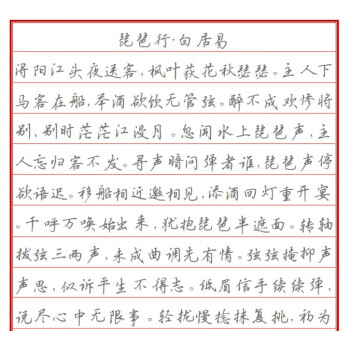 琵琶行·白居易
浔阳江头夜送客,枫叶荻花秋瑟瑟。主人下
马客在船,举酒欲饮无管弦。醉不成欢惨将
别,别时茫茫江浸月。忽闻水上琵琶声,主
人忘归客不发。寻声暗问弹者谁,琵琶声停
欲语迟。移船相近邀相见,添酒回灯重开宴
。千呼万唤始出来,犹抱琵琶半遮面。转轴
拔弦三两声,未成曲调先有情。弦弦掩抑声
声思,似诉平生不得志。低眉信手续续弹,
说尽心中无限事。轻拢慢捻抹复挑,初为